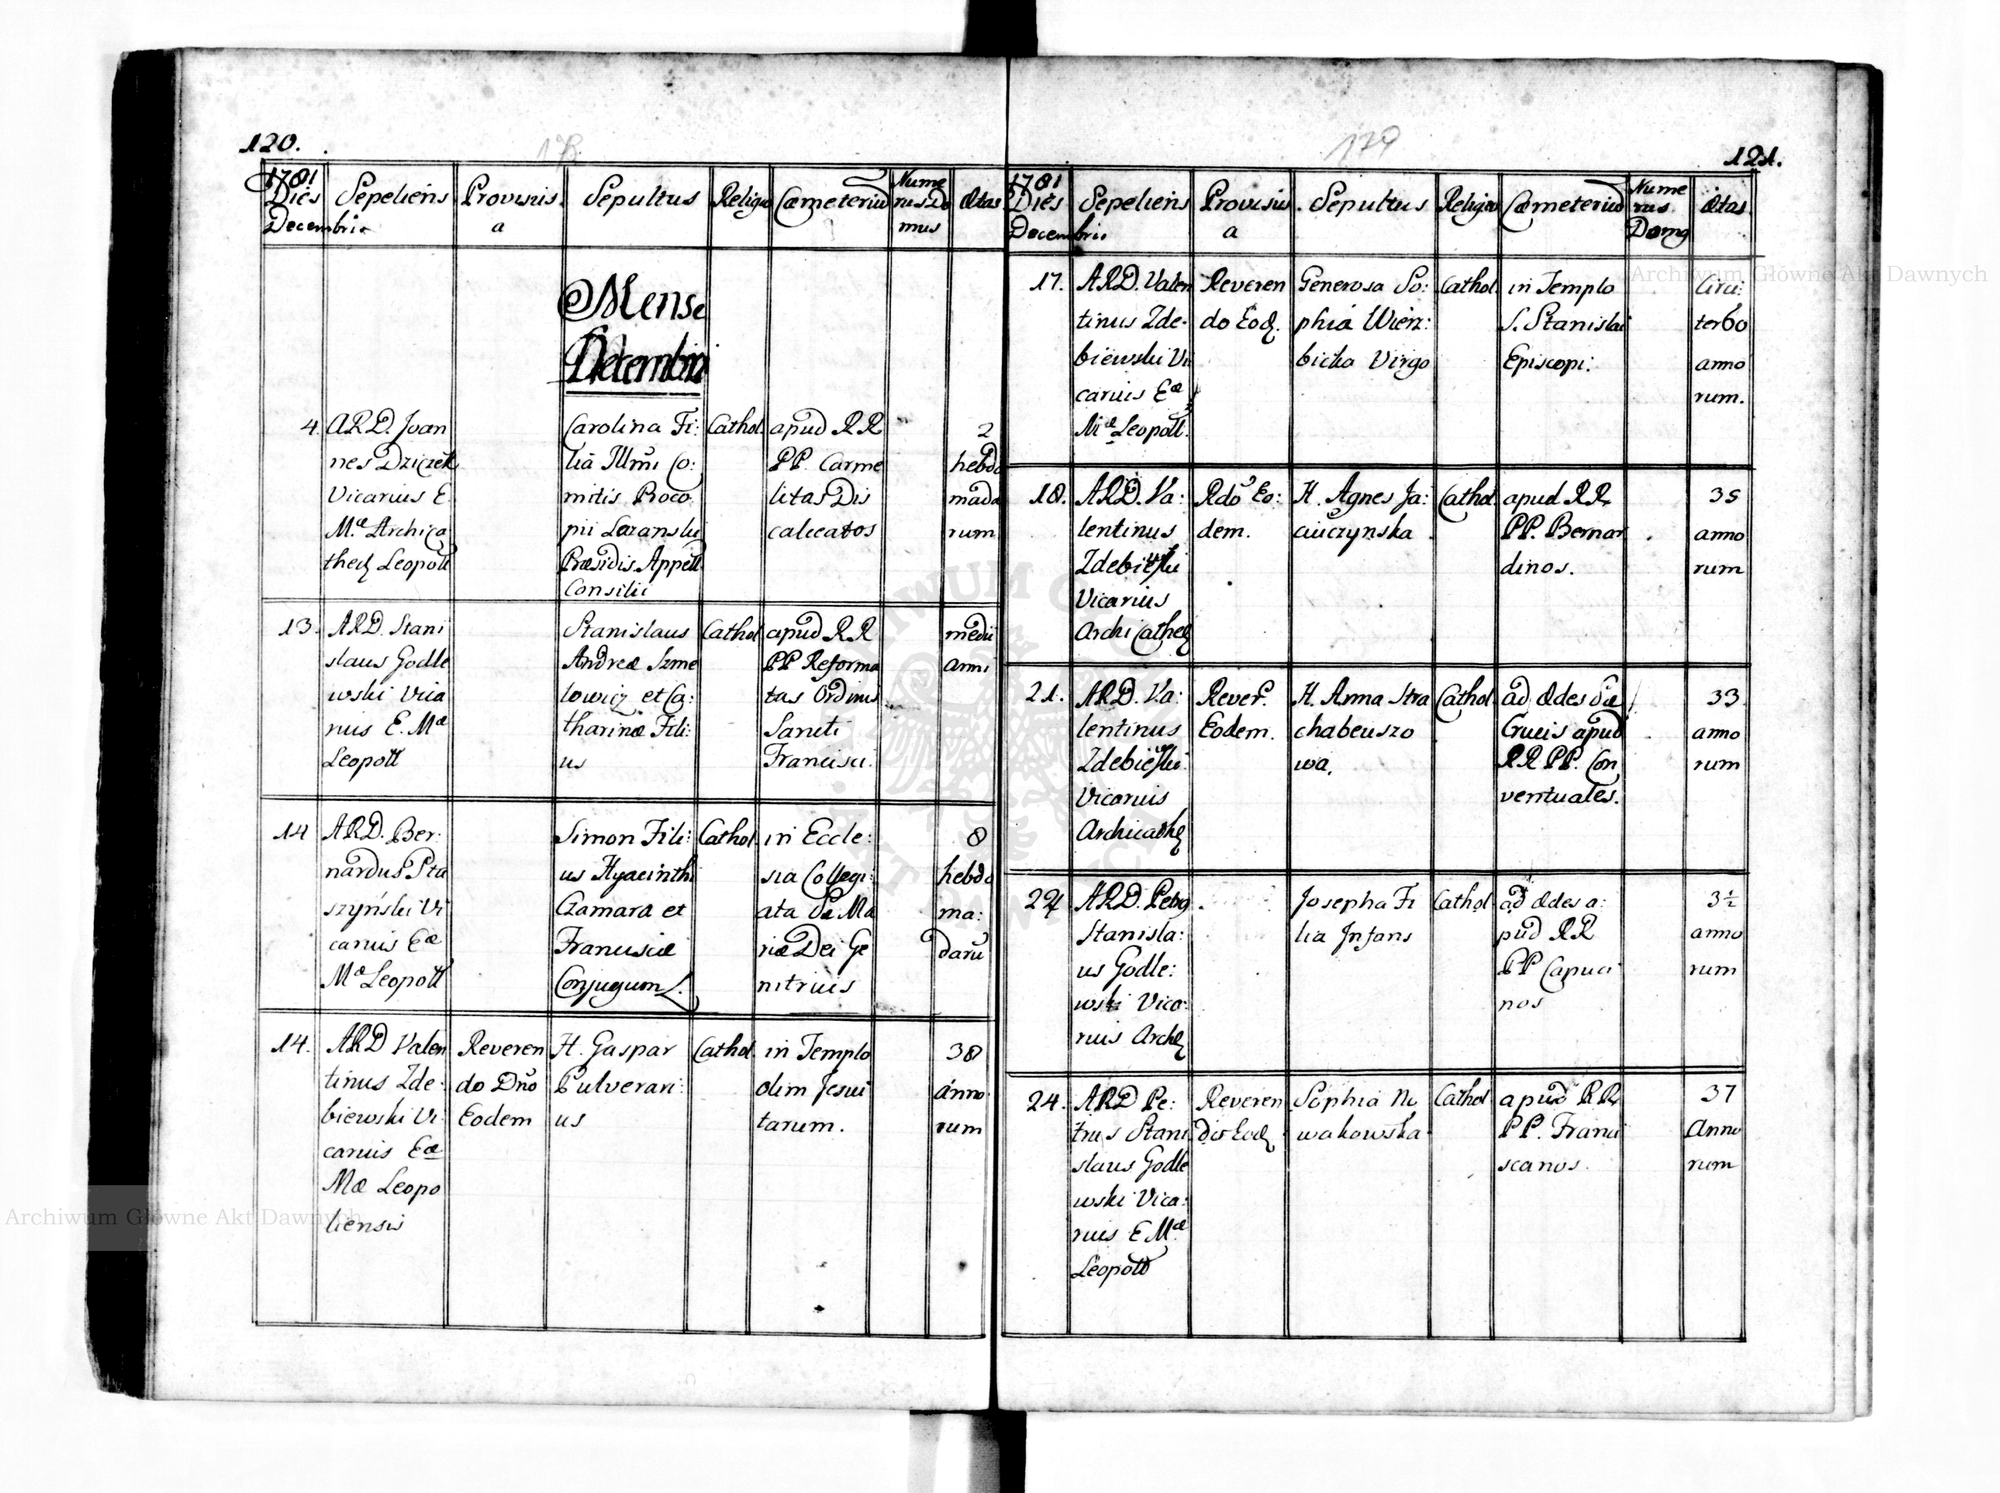 120.
178
1781
Dies
Decembris
Sepeliens
Provisus
a
Sepultus
Religio
Cæmeterium
Nume
rus Do
mus
Ætas
Mense
Decembri
4.
ARD. Joan
nes Dziczek
Vicarius E.
Mæ Archica
thed Leopoll
Carolina Fi:
lia Illmi Co:
mitis Proco
pii Lazanski
Præsidis Appell
Consilii
Cathol
apud RR
PP. Carme
litas Dis
calceatos
2
hebdo
mada
rum
13.
ARD. Stani
slaus Godle
wski Vica
rius E. Mæ
Leopoll
Stanislaus
Andreæ Szme
lowicz et Ca:
tharinæ Fili:
us
Cathol
apud RR
PP Reforma
tas Ordinis
Sancti
Francisci.
medii
anni
14
ARD. Ber:
nardus Pta
szyński Vi
carius Eæ
Mæ Leopoll
Simon Fili:
us Hyacinthi
Czamara et
Franciscæ
Conjugum
Cathol
in Eccle:
sia Collegi:
ata Sæ Ma
riæ Dei Ge
nitricis
8
hebdo
ma:
darū
14.
ARD Valen
tinus Zde:
biewski Vi
carius Eæ
Mæ Leopo
liensis
Reveren
do Dño
Eodem
H. Gaspar
Pulverari:
us
Cathol
in Templo
olim Jesui
tarum.
38
anno
rum
179
121.
1781
Dies
Decembris
Sepeliens
Provisus
a
Sepultus
Religio
Cæmeterium
Nume
rus
Domq
Ætas
17.
ARD. Valen
tinus Zde-
biewski Vi
carius Eæ
Mæ Leopoll.
Reveren
do Eod.
Generosa So:
phia Wierz:
bicka Virgo
Cathol
in Templo
S. Stanislai
Episcopi:
Circi:
ter 60
anno
rum.
18.
ARD. Va:
lentinus
Zdebiewski
Vicarius
Archicathed
Rdo Eo:
dem.
H. Agnes Ja:
ciuczynska
Cathol
apud RR
PP. Bernar
dinos.
35
anno
rum
21.
ARD. Va:
lentinus
Zdebiewski
Vicarius
Archicathed
Rever.
Eodem.
H. Anna Stra
chabeuszo
wa.
Cathol.
ad Ædes Sæ
Crucis apud
RR PP. Con
ventuales.
33
anno
rum
24
ARD. Petrq
Stanisla:
us Godle:
wski Vica:
rius Arched
Josepha Fi
lia Infans
Cathol
ad Ædes a:
pud RR
PP Capuci
nos
3½
anno
rum
24.
ARD Pe:
trus Stani
slaus Godle
wski Vica:
rius E Mæ
Leopoll
Reveren
do Eod
Sophia No
wakowska
Cathol
apud RR
PP. Franci
scanos.
37
Anno
rum
Archiwum Główne Akt Dawnych
Archiwum Główne Akt Dawnych